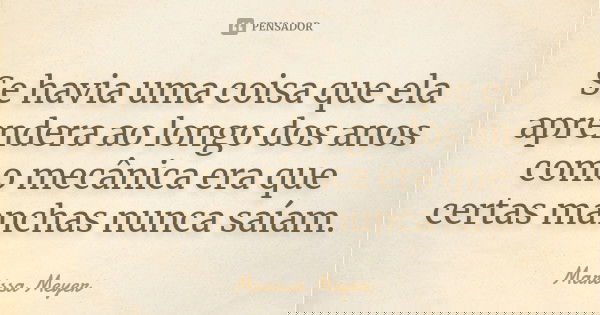 PENSADOR
Se havia uma coisa que ela
aprendera ao longo dos anos
como mecânica era que
certas manchas nunca saíam.
Marissa Meyer